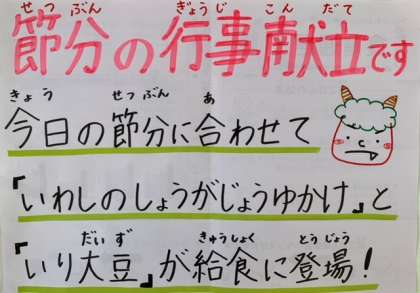 せつぶん ぎょうじ こんだて
節分の行事献立です
きょう せつぶん あ
今日の節分に合わせて
「いわしのしょうがじょうゆかけ」と
だいず きゅうしょく とうじょう
「いり大豆」が給食に登場!